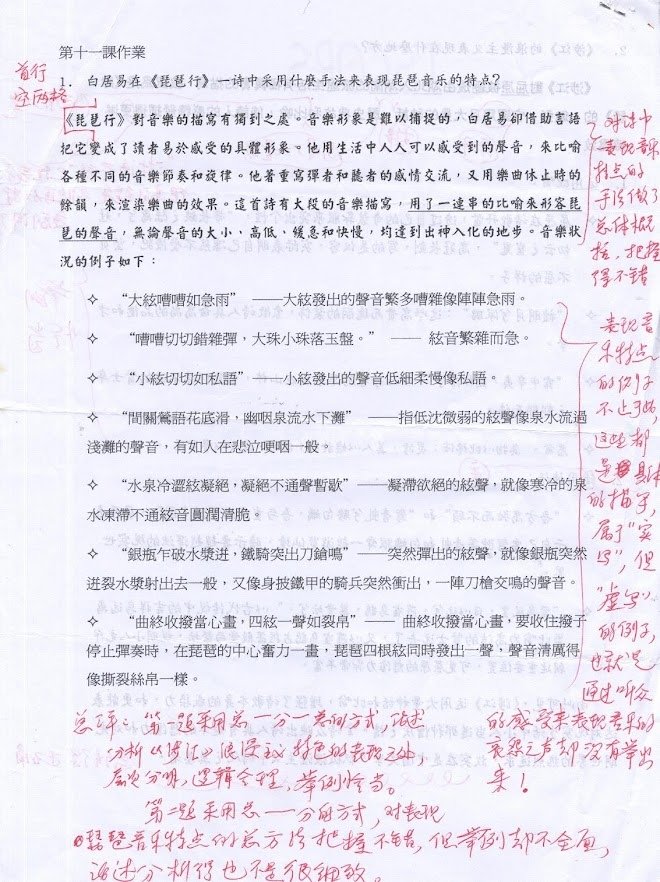 第十一課作業
1. 白居易在《琵琶行》一诗中采用什麼手法来表现琵琶音乐的特点?
首行
空两格
《琵琶行》對音樂的描寫有獨到之處。音樂形象是難以捕捉的，白居易卻借助言語
把它變成了讀者易於感受的具體形象。他用生活中人人可以感受到的聲音，來比喻
各種不同的音樂節奏和旋律。他著重寫彈者和聽者的感情交流，又用樂曲休止時的
餘韻，來渲染樂曲的效果。這首詩有大段的音樂描寫，用了一連串的比喻來形容琵
琶的聲音，無論聲音的大小、高低、緩急和快慢，均達到出神入化的地步。音樂狀
況的例子如下：
✧ “大絃嘈嘈如急雨” ——大絃發出的聲音繁多嘈雜像陣陣急雨。
✧ “嘈嘈切切錯雜彈，大珠小珠落玉盤。” —— 絃音繁雜而急。
✧ “小絃切切如私語” ——小絃發出的聲音低細柔慢像私語。
✧ “間關鶯語花底滑，幽咽泉流水下灘” ——指低沈微弱的絃聲像泉水流過
淺灘的聲音，有如人在悲泣哽咽一般。
✧ “水泉冷澀絃凝絕，凝絕不通聲暫歇” ——凝滯欲絕的絃聲，就像寒冷的泉
水凍滯不通絃音圓潤清脆。
✧ “銀瓶乍破水漿迸，鐵騎突出刀鎗鳴” ——突然彈出的絃聲，就像銀瓶突然
迸裂水漿射出去一般，又像身披鐵甲的騎兵突然衝出，一陣刀槍交鳴的聲音。
✧ “曲終收撥當心畫，四絃一聲如裂帛” —— 曲終時，要收住撥子
停止彈奏時，在琵琶的中心奮力一畫，琵琶四根絃同時發出一聲，聲音清厲得
像撕裂絲帛一樣。
对诗中
表现音乐
特点的
手法做了
总体概
括，把握
得不错
表现音
乐特点
的例子
不止了些，
这些都
是具体
的描写，
属于“实
写”，但
“虚写”
的例子，
也就是
通过听众
的感受来表现音乐的
哀怨之声却没有举出
来！
总评：第一题采用总—分—总的方式，论述
分析《涉江》浪漫主义特色的表现之处
层次分明，逻辑合理，举例恰当。
第二题采用总——分的方式，对表现
琵琶音乐特点的总方法把握不错，但举例却不全面，
论述分析得也不是很细致。